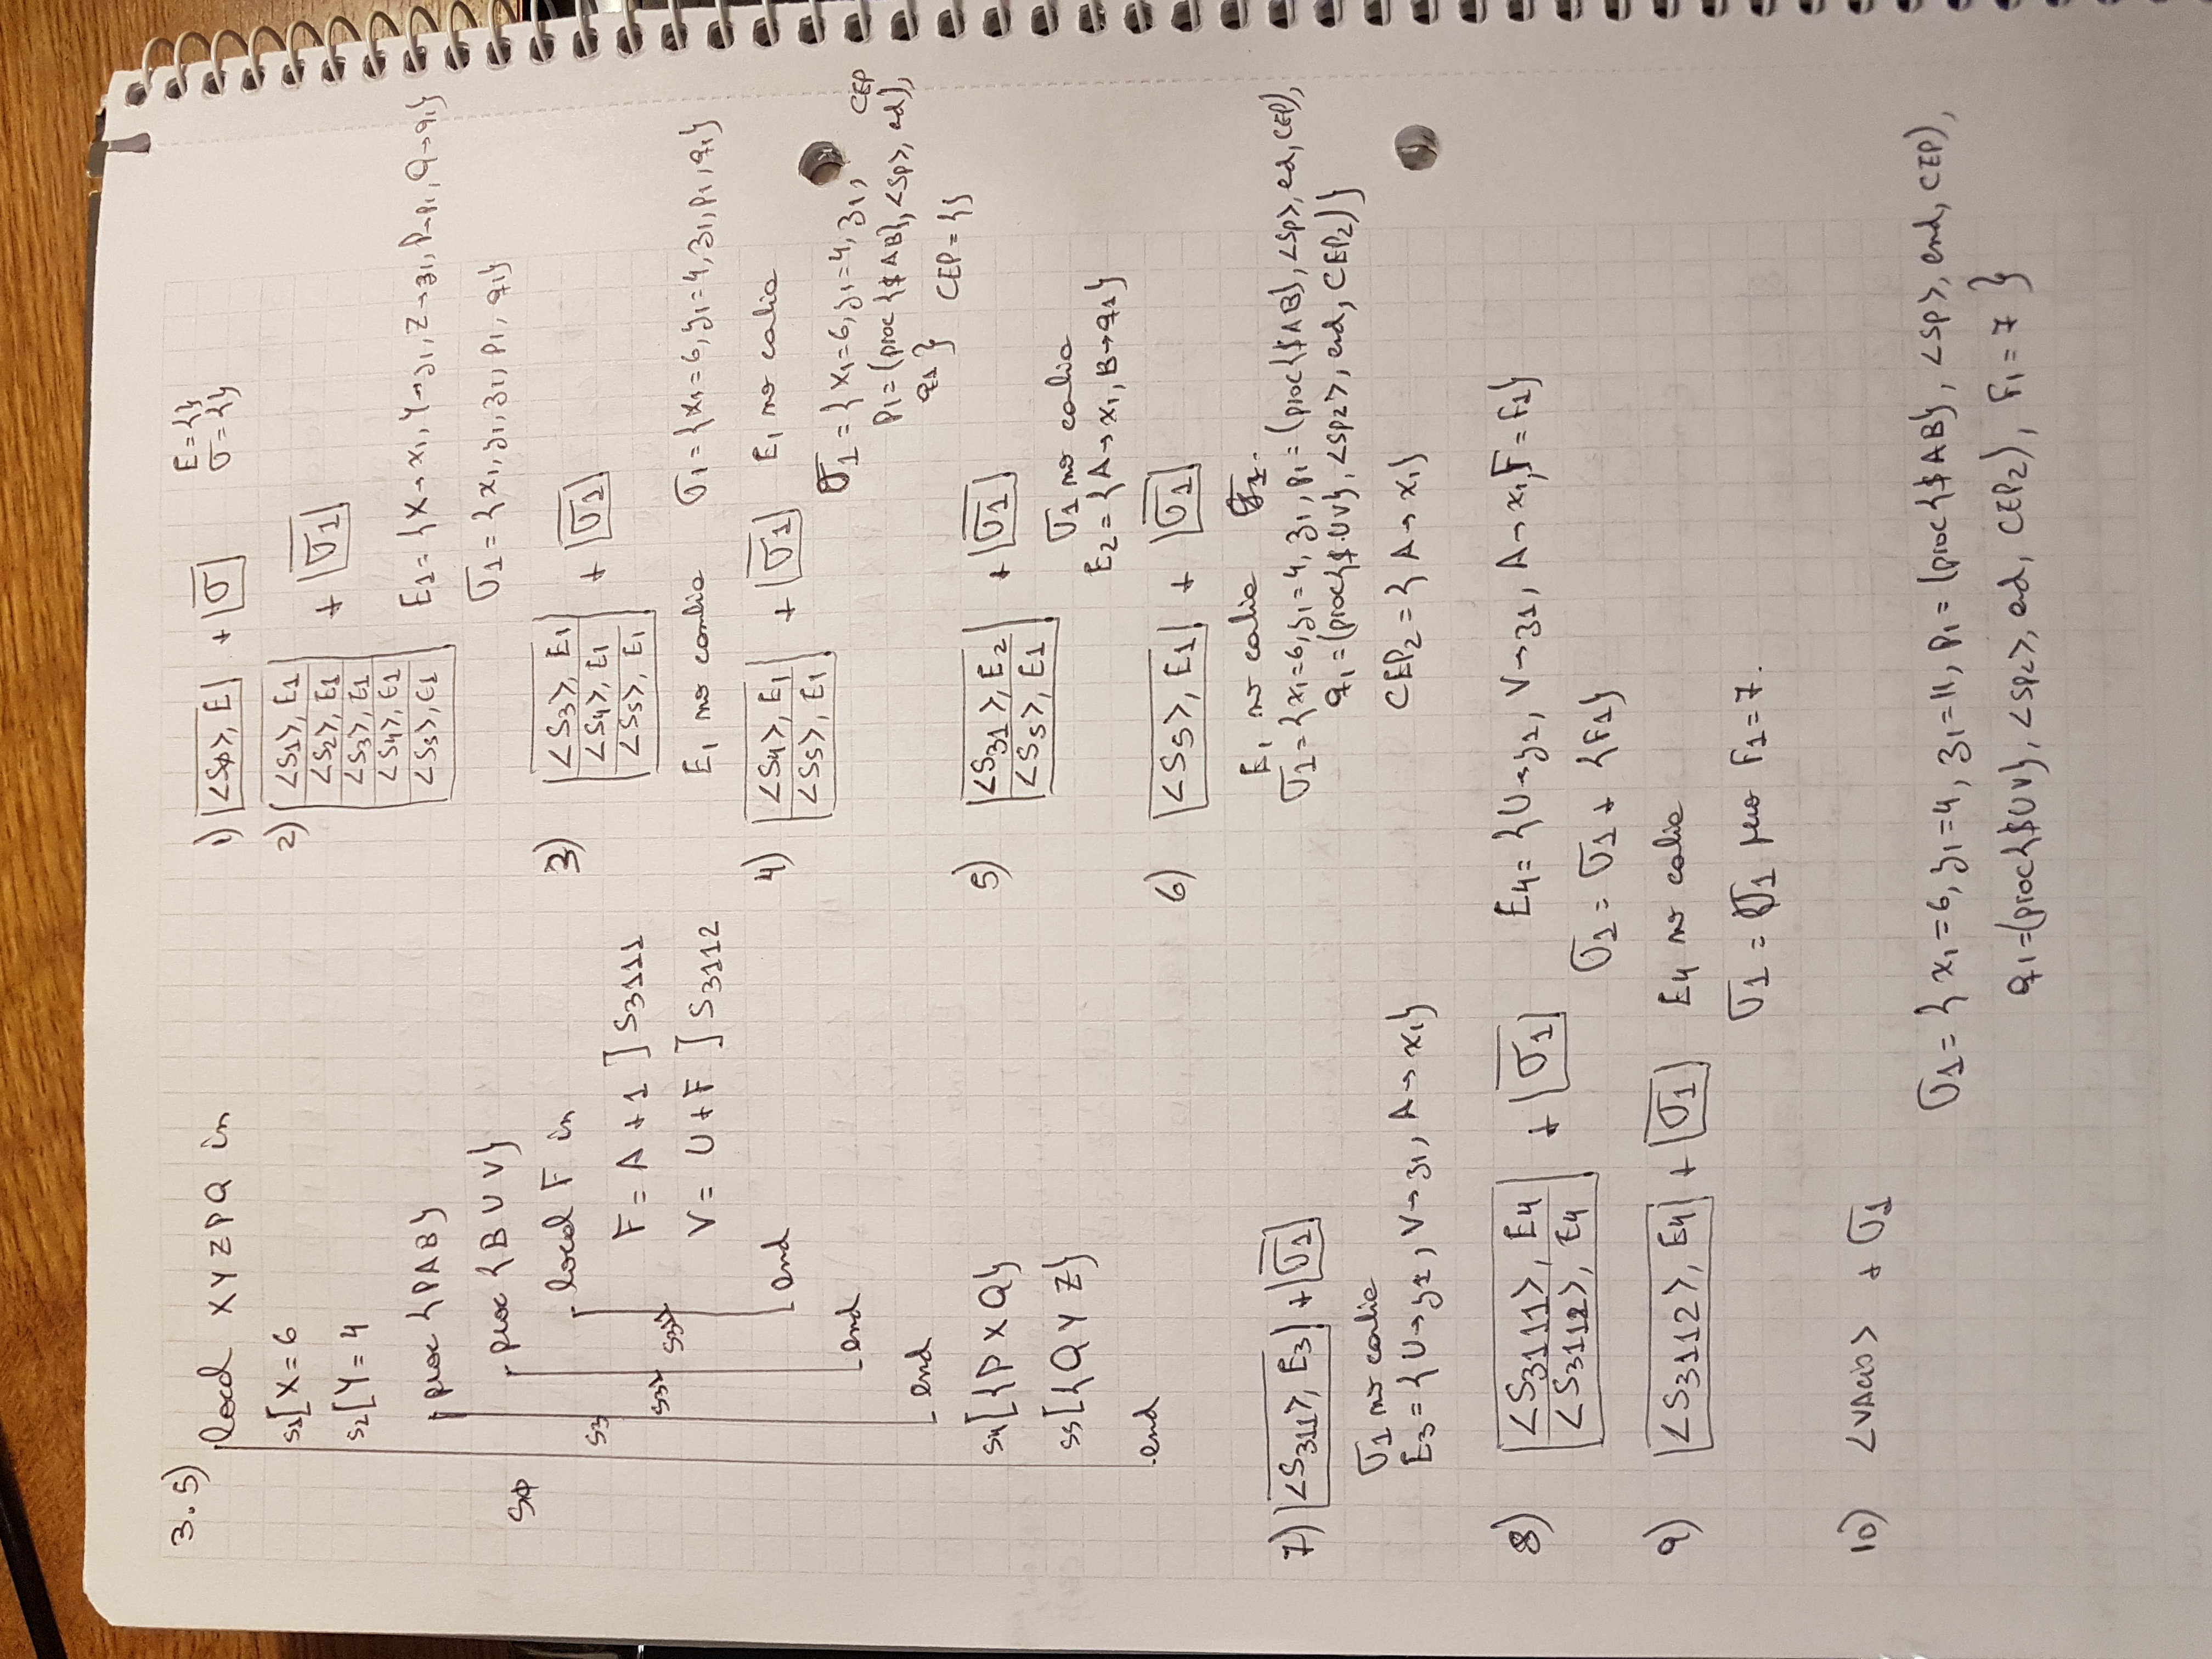 3.5)
local X Y Z P Q in
s1[ X = 6
s2[ Y = 4
proc {P A B}
proc {B U V}
local F in
F = A + 1 ] S3111
V = U + F ] S3112
end
end
end
s4[ {P X Q}
s5[ {Q Y Z}
end
SØ
S3
S31
S311
1) <SØ>, E + σ E = {}
σ = {}
2) <S1>, E1
<S2>, E1
<S3>, E1
<S4>, E1
<S5>, E1
+ σ1
E1 = {X→x1, Y→y1, Z→z1, P→p1, Q→q1}
σ1 = {x1, y1, z1, p1, q1}
3) <S3>, E1
<S4>, E1
<S5>, E1
+ σ1
E1 no cambia σ1 = {x1=6, y1=4, z1, p1, q1}
4) <S4>, E1
<S5>, E1
+ σ1 E1 no cambia
σ1 = {x1=6, y1=4, z1,
p1=(proc {$ A B}, <Sp>, end), CEP
q1 } CEP = {}
5) <S31>, E2
<S5>, E1
+ σ1
σ1 no cambia
E2 = {A→x1, B→q1}
6) <S5>, E1 + σ1
E1 no cambia
σ1 = {x1=6, y1=4, z1, p1 = (proc{$ A B}, <Sp>, end, CEP),
q1 = (proc{$ U V}, <Sp2>, end, CEP2)}
CEP2 = {A→x1}
7) <S311>, E3 + σ1
σ1 no cambia
E3 = {U→y1, V→z1, A→x1}
8) <S3111>, E4
<S3112>, E4
+ σ1 E4 = {U→y1, V→z1, A→x1, F=F1}
σ1 = σ1 + {F1}
9) <S3112>, E4 + σ1 E4 no cambia
σ1 = σ1 pero F1 = 7.
10) <VAcio> + σ1
σ1 = { x1=6, y1=4, z1=11, p1 = (proc{$ A B}, <Sp>, end, CEP),
q1=(proc{$ U V}, <Sp2>, end, CEP2), F1 = 7 }